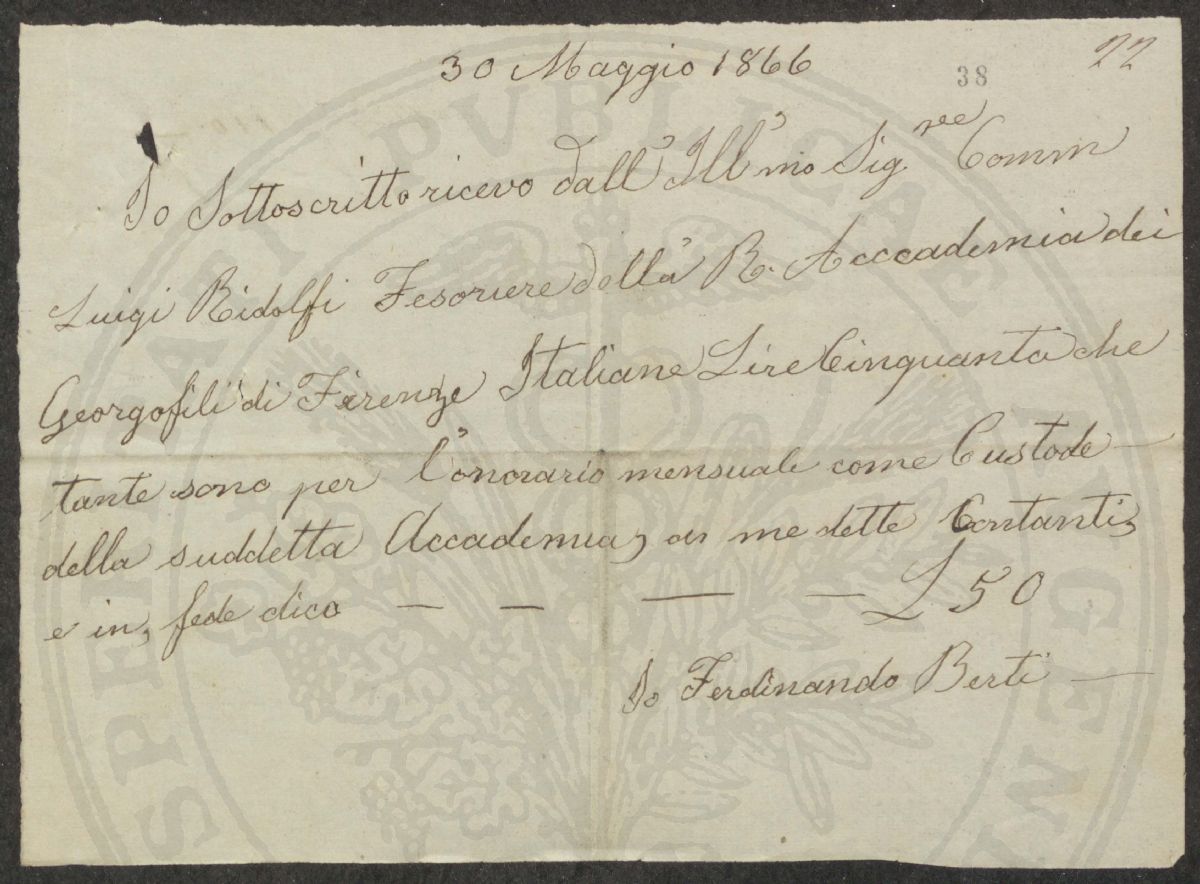 30 Maggio 1866
38
22
Io Sottoscritto ricevo dall' Ill'mo Sig.re Comm
Luigi Ridolfi Tesoriere della R. Acccademia dei
Georgofili di Firenze Italiane Lire Cinquanta che
tante sono per l'onorario mensuale come Custode
della suddetta Accademia, a me dette Contanti,
e in, fede dico — — — — £ 50
Io Ferdinando Berti —
PROSPERITATI PVBLICAE AVGENDAE